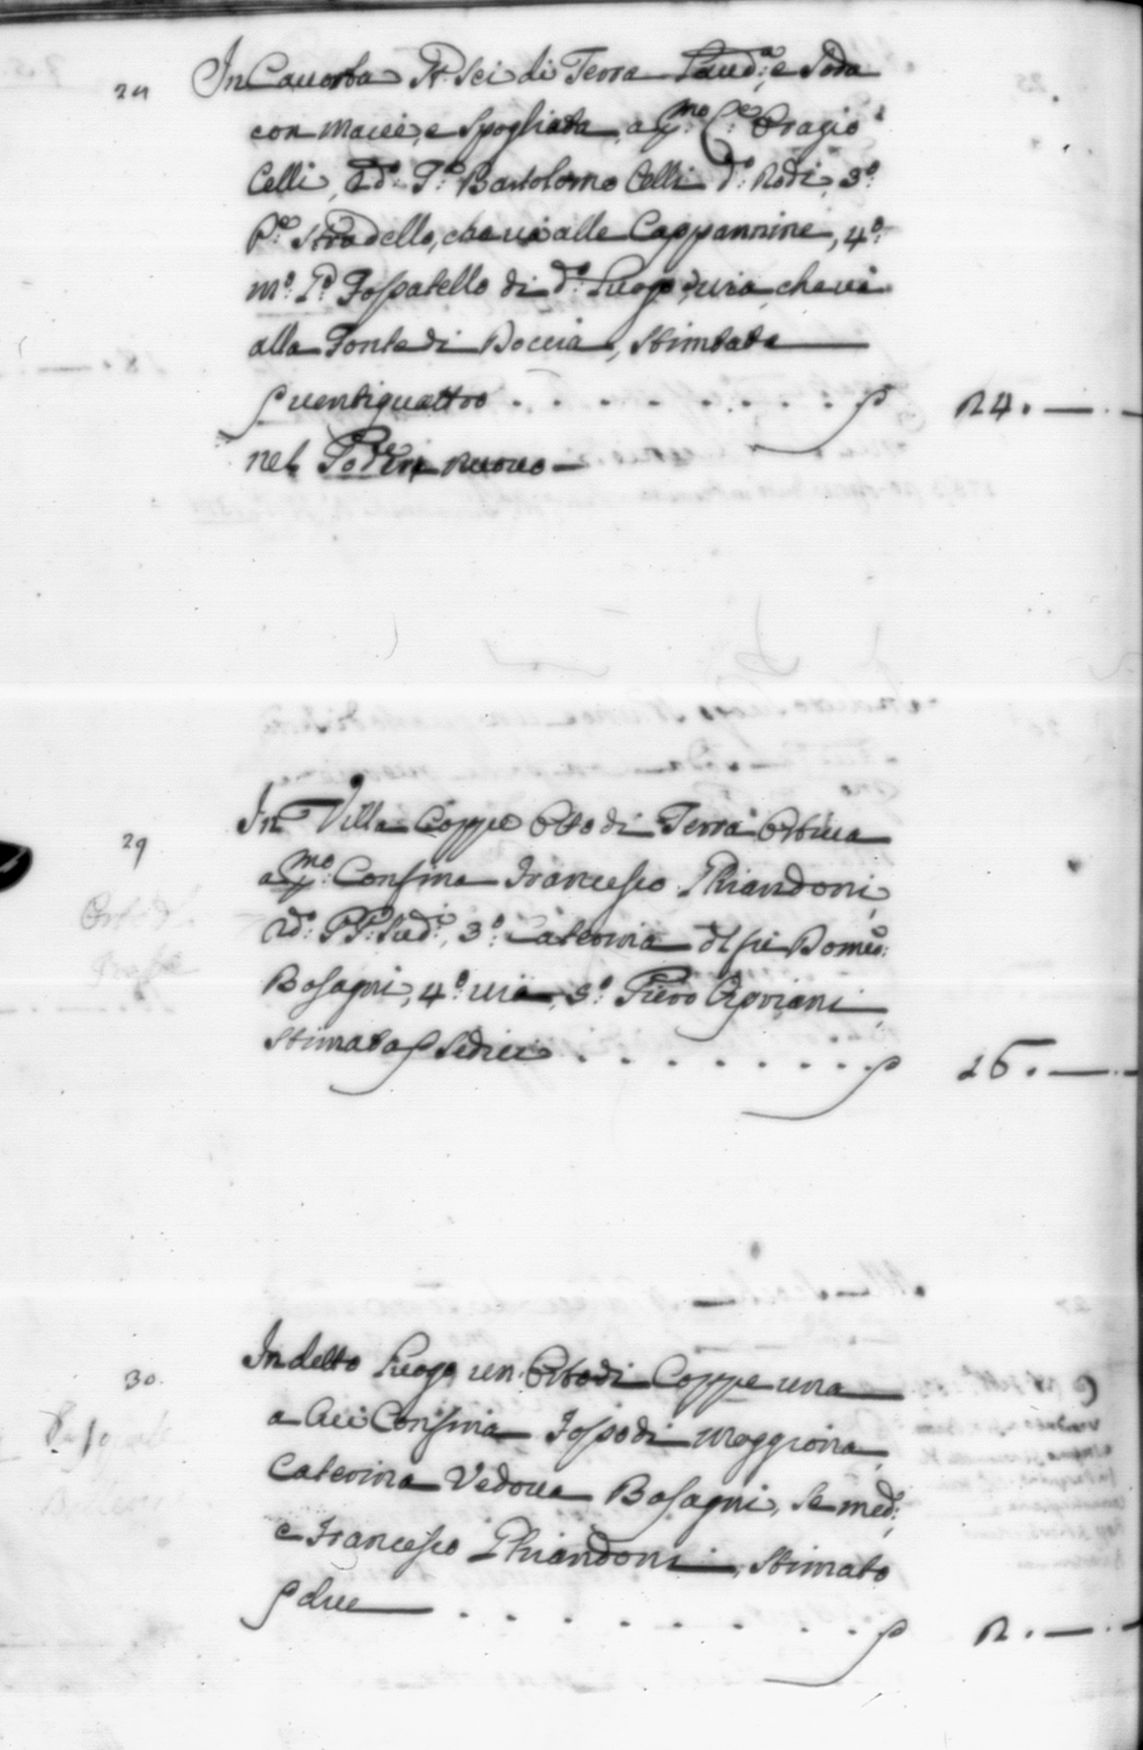 24 In Cavorba St. sei di Terra Laud.a e soda
con macci, e spogliata, a p.mo C.e Oragio
Celli, 2d.o P.o Bartolomo Celli d.o Rodi, 3.o
P.o stradello, che va alle Cappannine, 4.o
m.o P.o Fossatello di d.o Luogo, e via, che va
alla Fonte di Doccia, stimata
ventiquattro . . . . . . . . . 24. —
nel Podere nuovo —
29 In Villa Coppe Otto di Terra Ortiva
a p.mo Confina Francesco Phiandoni,
2d.o PP. Sud.i, 3.o Caterina di Domeo:
Bosagni, 4.o via, 5.o Piero Cipriani
stimata sedici . . . . . . . 16. —
30. In detto Luogo un Orto di Coppe una
a cui Confina Fosso di Moggiona,
Caterina Vedova Bosagni, Se med.o,
e Francesco Phiandoni, stimato
due . . . . . . . . 2. —